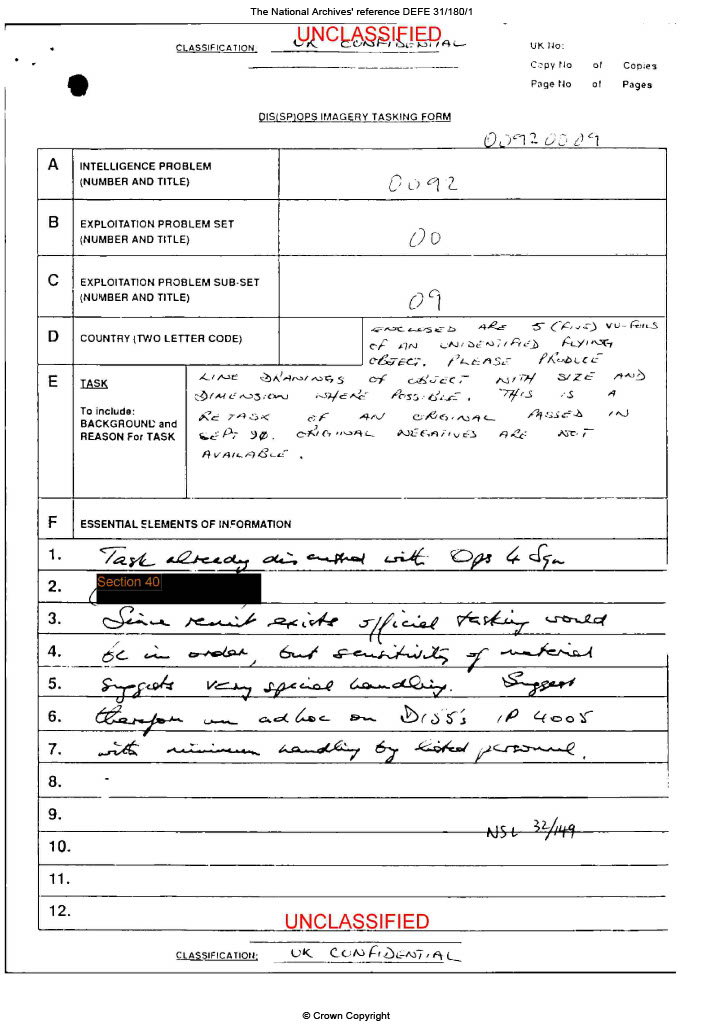 The National Archives' reference DEFE 31/180/1
UNCLASSIFIED
CLASSIFICATION: UK CONFIDENTIAL
UK No:
Copy No of Copies
Page No of Pages
DIS(SP)OPS IMAGERY TASKING FORM
00920009
A INTELLIGENCE PROBLEM (NUMBER AND TITLE) 0092
B EXPLOITATION PROBLEM SET (NUMBER AND TITLE) 00
C EXPLOITATION PROBLEM SUB-SET (NUMBER AND TITLE) 09
D COUNTRY (TWO LETTER CODE)
ENCLOSED ARE 5 (FIVE) VU-FOILS
OF AN UNIDENTIFIED FLYING
OBJECT. PLEASE PRODUCE
E TASK
To include:
BACKGROUND and
REASON For TASK
LINE DRAWINGS OF OBJECT WITH SIZE AND
DIMENSION WHERE POSSIBLE. THIS IS A
RETASK OF AN ORIGINAL PASSED IN
SEPT 90. ORIGINAL NEGATIVES ARE NOT
AVAILABLE.
F ESSENTIAL ELEMENTS OF INFORMATION
1. Task already discussed with Ops 4 Sqn
2. Section 40
3. Since remit exists official tasking would
4. be in order, but sensitivity of material
5. suggests very special handling. Suggest
6. therefore an ad hoc on DI55's IP 4005
7. with minimum handling by listed personnel.
8. -
9.
NSL 32/149
10.
11.
12.
UNCLASSIFIED
CLASSIFICATION: UK CONFIDENTIAL
© Crown Copyright